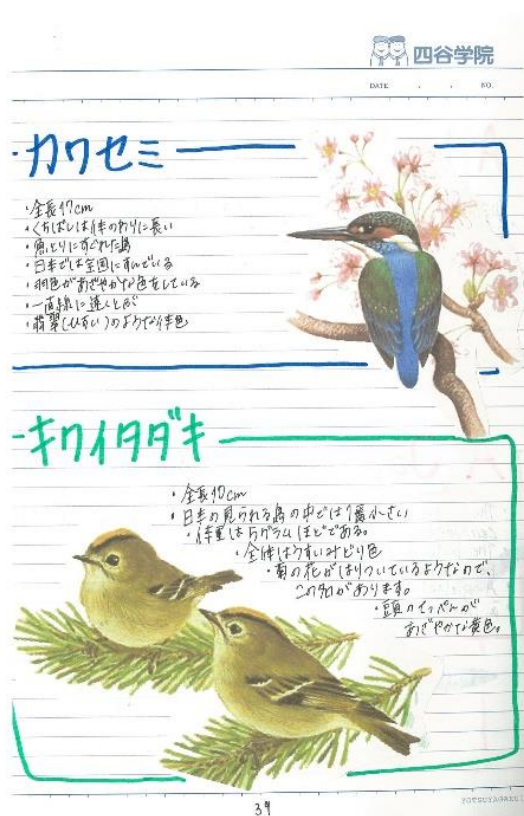 四谷学院
DATE . . NO.
カワセミ
・全長17cm
・くちばしは体のわりに長い
・魚とりにすぐれた鳥
・日本では全国にすんでいる
・羽色があざやかな色をしている
・一直線に速くとぶ
・翡翠(ひすい)のような体色
キクイタダキ
・全長10cm
・日本の見られる鳥の中では1番小さい
・体重は5グラムほどである。
・全体はうすいみどり色
・菊の花がはりついているようなので、
この名があります。
・頭のてっぺんが
あざやかな黄色。
39